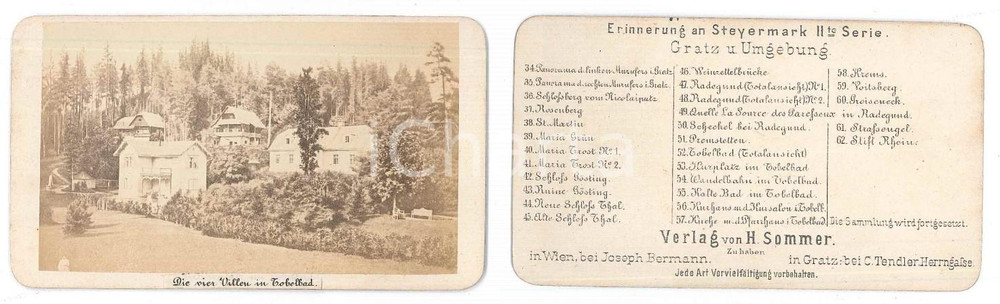 Die vier Villen in Tobelbad.
Erinnerung an Steyermark IIte Serie.
Gratz u Umgebung
34. Panorama d. linken Murufers i. Gratz.
35. Panorama d. rechten Murufers i. Gratz.
36. Schloßberg vom Nicolaiplatz
37. Rosenberg
38. St. Martin
39. Maria Grün
40. Maria Trost No. 1.
41. Maria Trost No. 2.
42. Schloss Gösting.
43. Ruine Gösting.
44. Neue Schloss Thal.
45. Alte Schloss Thal.
46. Weinzettelbrücke
47. Radegund (Totalansicht) No. 1.
48. Radegund (Totalansicht) No. 2.
49. Quelle La Source des Paresseux in Radegund.
50. Schöckel bei Radegund.
51. Premstetten.
52. Tobelbad (Totalansicht)
53. Kurplatz im Tobelbad
54. Wandelbahn im Tobelbad.
55. Kalte Bad im Tobelbad.
56. Kurhaus m.d. Kursalon i Tobelb.
57. Kirche m.d. Pfarrhaus i Tobelbad
58. Krems.
59. Voitsberg
60. Greiseneck.
61. Strassengel.
62. Stift Rhein.
Die Sammlung wird fortgesetzt.
Verlag von H. Sommer.
Zu haben
in Wien, bei Joseph Bermann. in Gratz: bei C. Tendler Herrngaße.
Jede Art Vervielfältigung vorbehalten.